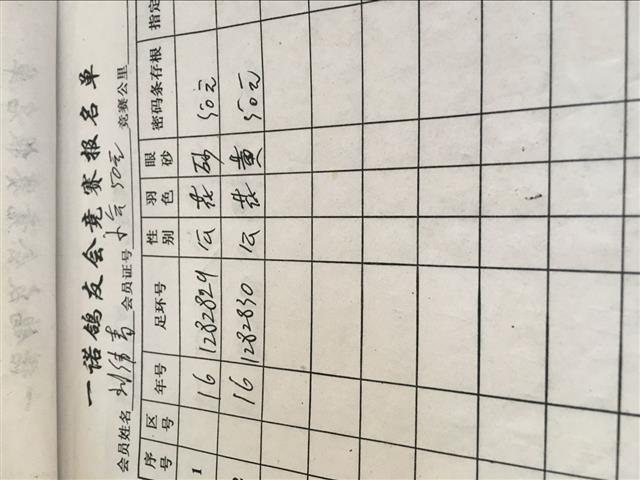 一诺鸽友会竞赛报名单
会员姓名 刘伟青 会员证号 大会50元 竞赛公里
序号 区号 年号 足环号 性别 羽色 眼砂 密码条存根 指定
1 16 1282829 公 花 砂 50元
16 1282830 公 花 黄 50元